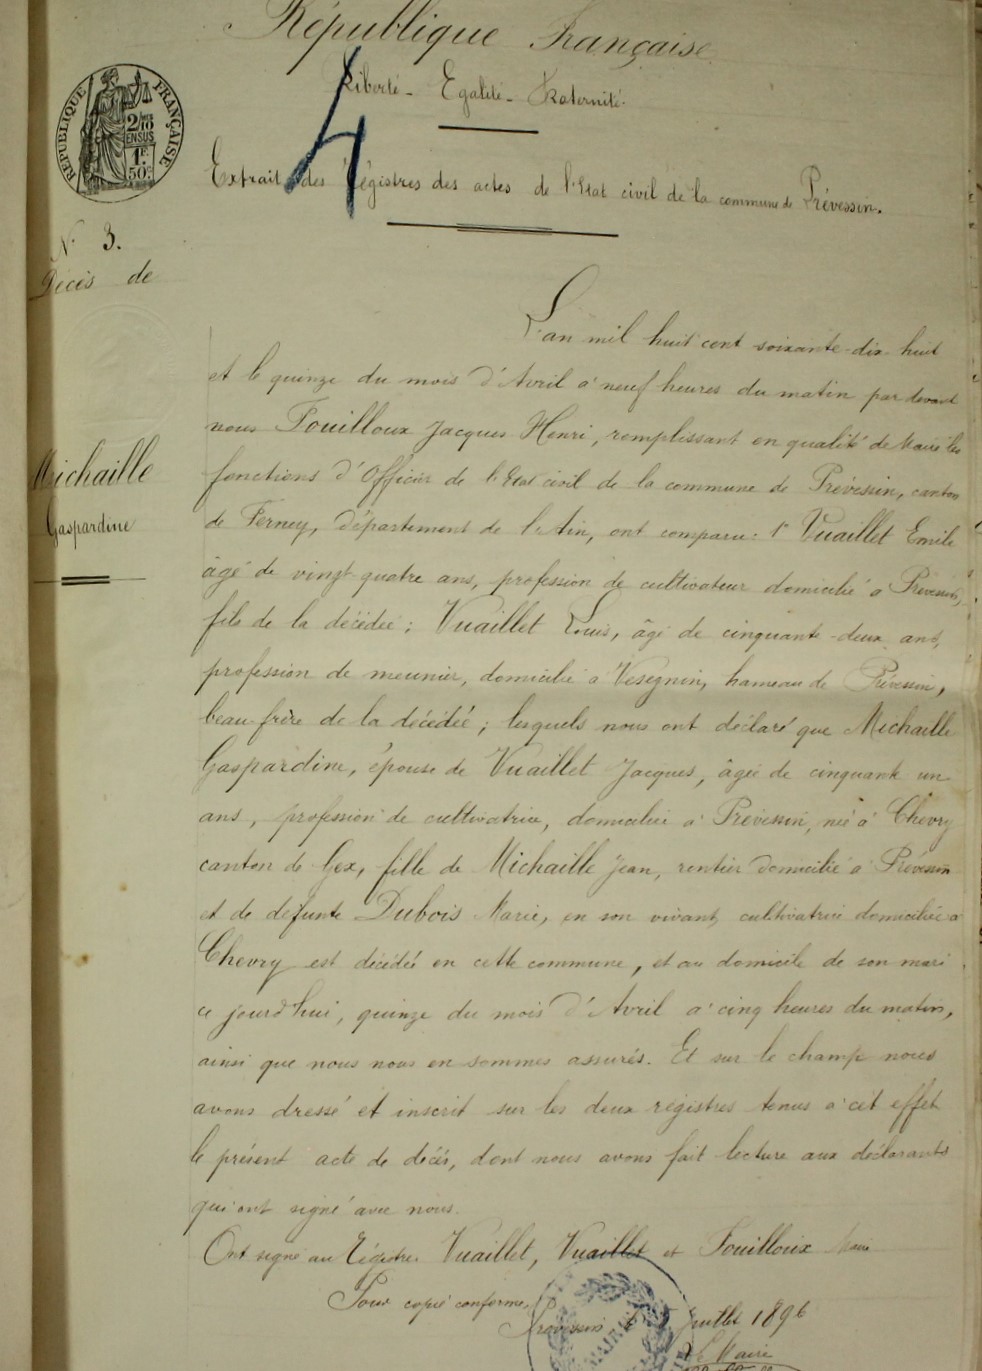 République Française
Liberté - Egalité - Fraternité.
RÉPUBLIQUE FRANÇAISE
2/10 EN SUS
1F. 50c.
4
Extrait des Régistres des actes de l'Etat civil de la commune de Prévessin.
N. 3.
Décès de
Michaille
Gaspardine
L'an mil huit cent soixante-dix-huit
et le quinze du mois d'Avril à neuf heures du matin par devant
nous Fouilloux Jacques Henri, remplissant en qualité de Maire les
fonctions d'Officier de l'Etat civil de la commune de Prévessin, canton
de Ferney, département de l'Ain, ont comparu: 1° Vuaillet Emile
âgé de vingt-quatre ans, profession de cultivateur domicilié à Prévessin,
fils de la décédée; Vuaillet Louis, âgé de cinquante-deux ans,
profession de meunier, domicilié à Vésegnin, hameau de Prévessin,
beau-frère de la décédée; lesquels nous ont déclaré que Michaille
Gaspardine, épouse de Vuaillet Jacques, âgée de cinquante un
ans, profession de cultivatrice, domiciliée à Prévessin, née à Chevry
canton de Gex, fille de Michaille Jean, rentier domicilié à Prévessin
et de défunte Dubois Marie, en son vivant, cultivatrice domiciliée à
Chevry est décédée en cette commune, et au domicile de son mari
ce jourd'hui, quinze du mois d'Avril à cinq heures du matin,
ainsi que nous nous en sommes assurés. Et sur le champ nous
avons dressé et inscrit sur les deux régistres tenus à cet effet
le présent acte de décés, dont nous avons fait lecture aux déclarants
qui ont signé avec nous.
Ont signé au Régistre. Vuaillet, Vuaillet et Fouilloux Maire
Pour copie conforme.
Prévessin Juillet 1896
Le Maire